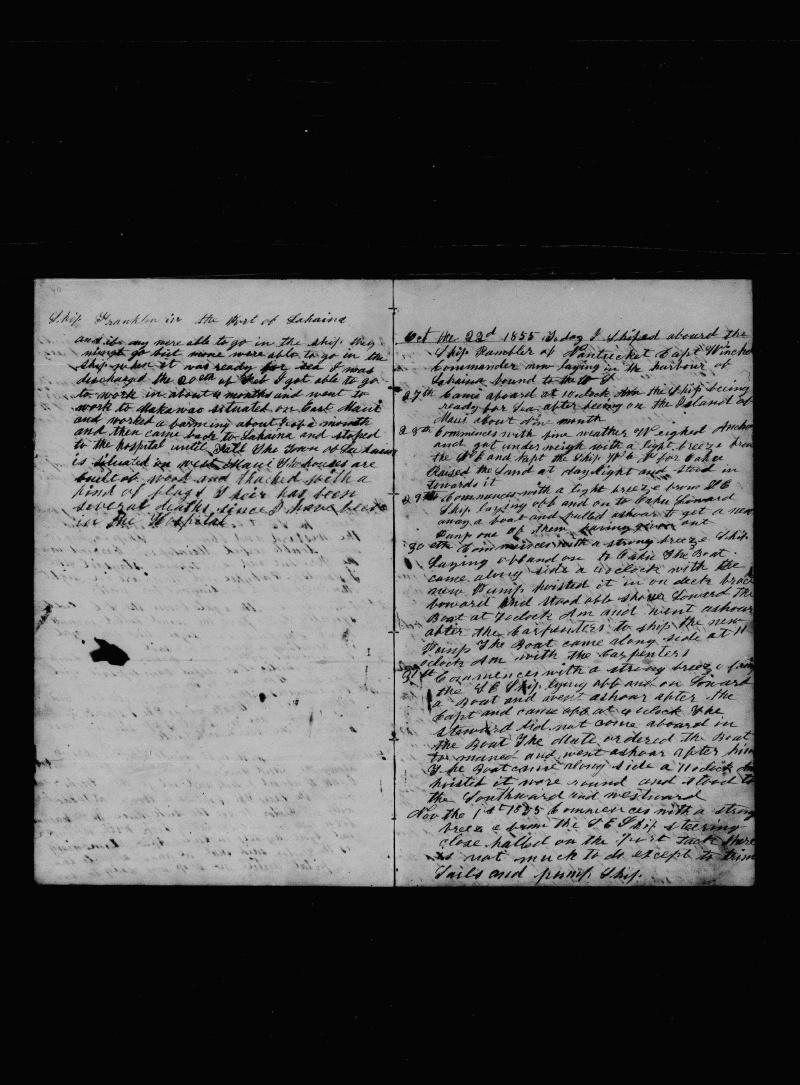 Ship Franklin in the Port of Lahaina
and if any were able to go in the ship they
might go but none were able to go in the
ship when it was ready for sea I was
discharged the 20th of Feb I got able to go
to work in about 4 months and went to
work to Makawao situated on East Maui
and worked a farming about month
and then came back to Lahaina and stoped
to the hospital until The Town of Lahaina
is situated on West Maui The houses are
built of wood and thached with a
kind of flags Their has been
several deaths since I have been
in the Hospital
Oct the 22nd 1855 To day I Shiped aboard the
Ship Rambler of Nantucket Capt
Commander now laying in the harbour of
Lahaina bound to the
27th Came aboard at 10 oclock Am the Ship being
ready for Sea after being on the Island of
Maui about month
28th Commences with fine weather Weighed Anchor
and got underweigh with a light breeze from
the and kept the Ship for Oahu
Raised the Land at daylight and stood in
towards it
29th Commences with a light breeze from
Ship laying off and on to Oahu Lowerd
away a boat and pulled ashoar to get a new
Pump one of them having given out
30 eth Commences with a strong breeze Ship
Laying off and on to Oahu The Boat
came along side a oclock with the
new Pump hoisted it in on deck
forward and stood off shore Lowerd the
Boat at 7 oclock Am and went ashoar
after the Carpenters to ship the new
Pump The Boat came along side at 11
oclock Am with the Carpenters
31st Commences with a strong breeze from
the Ship lying off and on Lowerd
a Boat and went ashoar after the
Capt and came off at oclock The
steward did not come aboard in
the Boat The Mate ordered the Boat
to maned and went ashoar after him
The Boat came along side a 11 oclock
hoisted it wore round and stood to
the Southward and westward
Nov the 1st 1855 Commences with a strong
breeze from the Ship steering
close halled on the Port tack there
is not much to do except to trim
Sails and pump Ship.